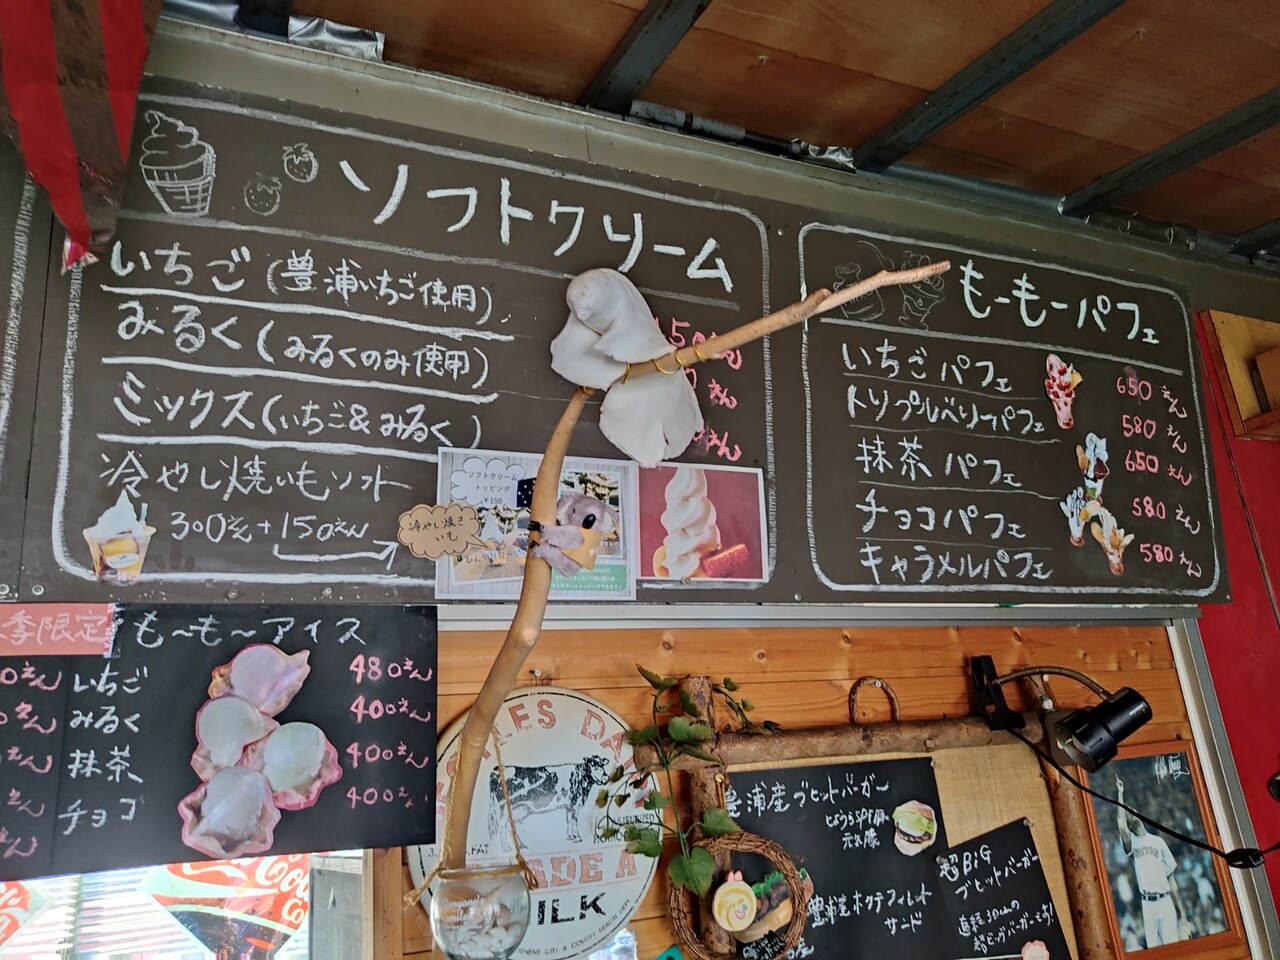 ソフトクリーム
いちご(豊浦いちご使用)
みるく(みるくのみ使用)
ミックス(いちご&みるく)
冷やし焼いもソフト
300えん+150えん
ソフトクリーム
トッピング
¥150
冷やし焼き
いも
もーもーパフェ
いちごパフェ 650えん
トリプルベリーパフェ 580えん
抹茶パフェ 650えん
チョコパフェ 580えん
キャラメルパフェ 580えん
季限定
も~も~アイス
いちご 480えん
みるく 400えん
抹茶 400えん
チョコ 400えん
Coca-Cola
MILK
豊浦産ブヒットバーガー
とようらSPF豚
元気豚
豊浦産ホタテフィレット
サンド
超BiG
ブヒットバーガー
直径30cmの
超ビッグバーガーです!